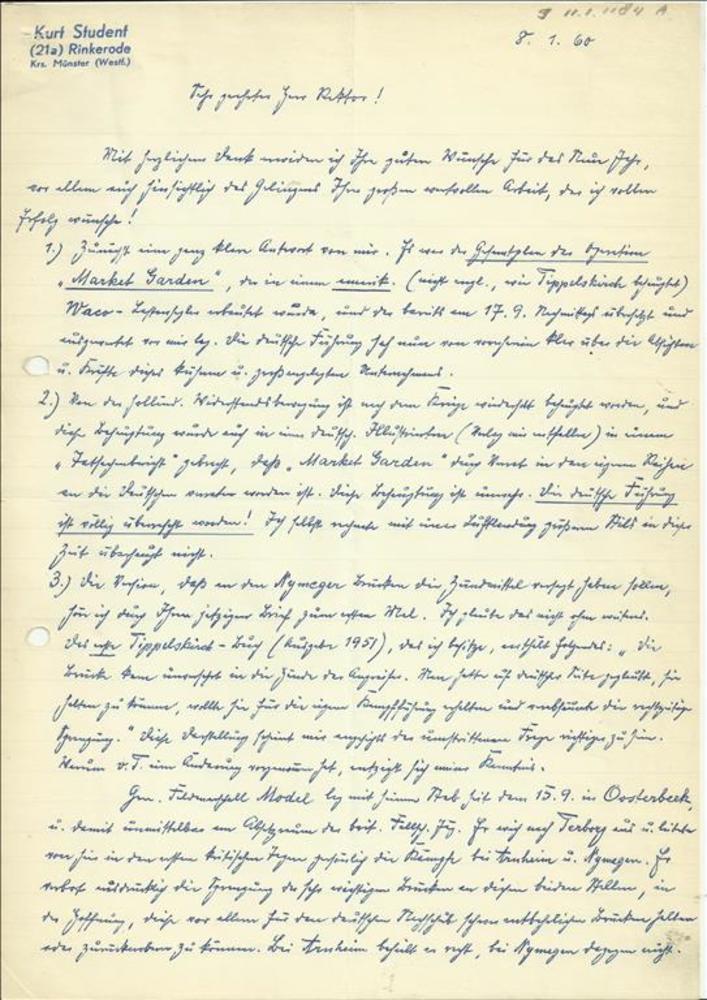 Kurt Student
(21a) Rinkerode
Krs. Münster (Westf.)
8. 1. 60
Sehr geehrter Herr Rektor!
Mit herzlichem Dank erwidere ich Ihre guten Wünsche für das Neue Jahr,
vor allem auch hinsichtlich des Gelingens Ihrer großen wertvollen Arbeit, der ich vollen
Erfolg wünsche!
1.) Zunächst eine ganz klare Antwort von mir. Es war der Gesamtplan der Operation
"Market Garden", der in einem amerik. (nicht engl., wie Tippelskirch behauptet)
Waco-Lastensegler erbeutet wurde, und der bereits am 17. 9. Nachmittags übersetzt und
ausgewertet vor mir lag. Die deutsche Führung sah nun von vornherein klar über die Absichten
u. Kräfte dieses kühnen u. großangelegten Unternehmens.
2.) Von der holländ. Widerstandsbewegung ist nach dem Kriege wiederholt behauptet worden, und
diese Behauptung wurde auch in einer deutsch. Illustrierten (Verlag mir entfallen) in einem
"Tatsachenbericht" gebracht, daß "Market Garden" durch Verrat in den eigenen Reihen
an die Deutschen verraten worden ist. Diese Behauptung ist unwahr. Die deutsche Führung
ist völlig überrascht worden! Ich selbst rechnete mit einer Luftlandung größeren Stils in dieser
Zeit überhaupt nicht.
3.) Die Version, daß an den Nymeger Brücken die Zündmittel versagt haben sollen,
höre ich durch Ihren jetzigen Brief zum ersten Mal. Ich glaube das nicht ohne weiteres.
Das erste Tippelskirch-Buch (Ausgabe 1951), das ich besitze, enthält folgendes: "Die
Brücke kam unversehrt in die Hände der Angreifer. Man hatte auf deutscher Seite geglaubt, sie
halten zu können, wollte sie für die eigene Kampfführung erhalten und versäumte die rechtzeitige
Sprengung." Diese Darstellung scheint mir angesichts der umstrittenen Frage richtiger zu sein.
Warum v. T. eine Änderung vorgenommen hat, entzieht sich meiner Kenntnis.
Gen. Feldmarschall Model lag mit seinem Stab seit dem 15. 9. in Oosterbeek,
u. damit unmittelbar am Absetzraum der brit. Fallsch. Jäg. Er wich nach Terborg aus u. leitete
von hier in den ersten kritischen Tagen persönlich die Kämpfe bei Arnheim u. Nymegen. Er
verbot ausdrücklich die Sprengung der sehr wichtigen Brücken an diesen beiden Stellen, in
der Hoffnung, diese vor allem für den deutschen Nachschub schwer entbehrlichen Brücken halten
oder zurückerobern zu können. Bei Arnheim behielt er recht, bei Nymegen dagegen nicht.